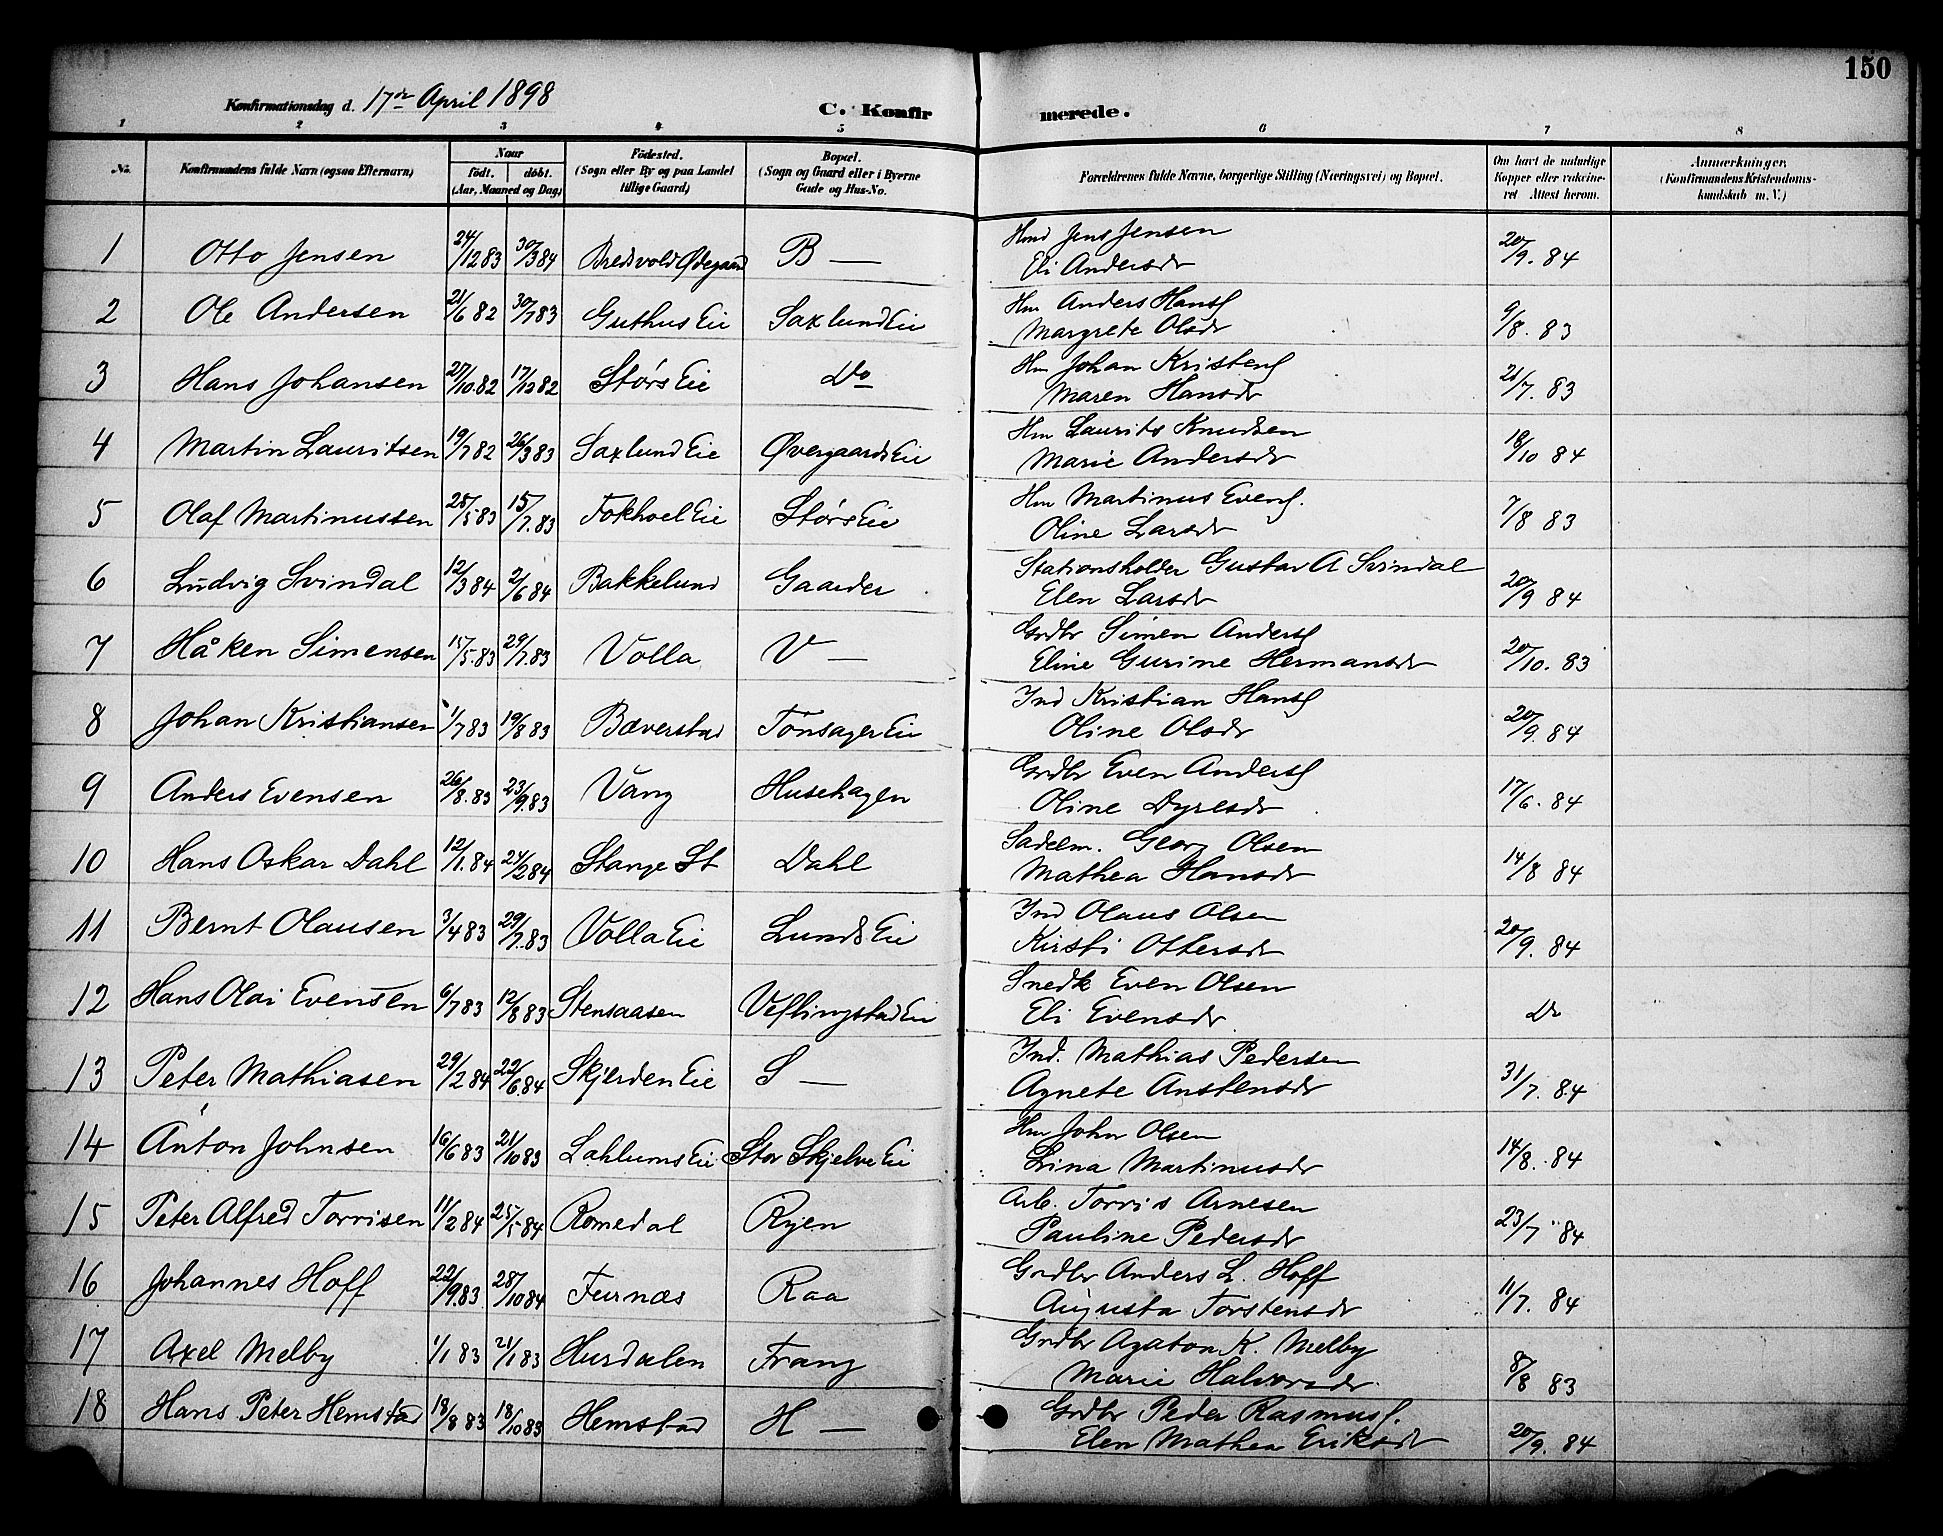 150
Konfirmationsdag d. 17de April 1898
C. Konfirmerede.
1 2 3 4 5 6 7 8
No. Konfirmandens fulde Navn (ogsaa Efternavn) Naar født. døbt. (Aar, Maaned og Dag) Fødested. (Sogn eller By og paa Landet tillige Gaard) Bopæl. (Sogn og Gaard eller i Byerne Gade og Hus-No. Forældrenes fulde Navne, borgerlige Stilling (Næringsvei) og Bopæl. Om havt de naturlige Kopper eller vakcineret Attest herom. Anmærkninger. (Konfirmandens Kristendomskundskab m. V.)
1 Otto Jensen 24/12 83 30/3 84 Bredvold Ødegaard B — Hmd Jens Jensen 20/9. 84
Eli Andersdr
2 Ole Andersen 21/6 82 30/7 83 Guthus Eie Saxlund Eie Hm Anders Hansf 9/8. 83
Margrete Olsdr
3 Hans Johansen 27/10.82 17/12 82 Størs Eie Do Hm Johan Kristenf 21/7. 83
Maren Hansdr
4 Martin Lauritsen 19/7 82 26/3 83 Saxlund Eie Øvergaards Eie Hm Laurits Knudsen 18/10 84
Marie Andersdr
5 Olaf Martinussen 25/5 83 15/7.83 Fokhoel Eie Størs Eie Hm Martinus Evenf. 7/8 83
Oline Larsdr
6 Ludvig Svindal 12/3 84 2/6 84 Bakkelund Gaarder Stationsholder Gustav A Svindal 20/9 84
Elen Larsdr
7 Håken Simensen 15/5.83 29/7.83 Volla V — Grdbr Simen Andersf 20/10. 83
Eline Gurine Hermansdr
8 Johan Kristiansen 1/7 83 19/8 83 Bæverstad Tonsager Eie Ind Kristian Hansf 20/9. 84
Oline Olsdr
9 Anders Evensen 26/8.83 23/9.83 Vang Husehagen Grdbr Even Andersf 17/6. 84
Oline Dyresdr
10 Hans Oskar Dahl 12/1.84 24/2 84 Stange St Dahl Sadelm. Georg Olsen 14/8 84
Mathea Hansdr
11 Bernt Olausen 3/4 83 29/7.83 Volla Eie Lunds Eie Ind Olaus Olsen 20/9. 84
Kirsti Ottersdr
12 Hans Olai Evensen 6/7 83 12/8 83 Stensaasen Veflingstad Eie Snedk Even Olsen Do
Eli Evensdr
13 Peter Mathiasen 29/2 84 22/6.84 Skjerden Eie S — Ind. Mathias Pedersen 31/7. 84
Agnete Anstensdr
14 Anton Johnsen 16/6 83 21/10 83 Lahlums Eie Stor Skjelve Eie Hm John Olsen 14/8. 84
Lina Martinusdr
15 Peter Alfred Torrisen 11/2 84 25/5 84 Romedal Ryen Arb. Torris Arnesen 23/7 84
Pauline Pedersdr
16 Johannes Hoff 22/9.83 28/10 84 Furnæs Raa Grdbr Anders L. Hoff 11/7. 84
Augusta Torstensdr
17 Axel Melby 1/1 83 21/1 83 Hurdalen Frang Grdbr Agaton K. Melby 8/8 83
Marie Halvorsdr
18 Hans Peter Hemstad 18/8 83 18/10 83 Hemstad H — Grdbr Peder Rasmusf. 20/9. 84
Elen Mathea Eriksdr